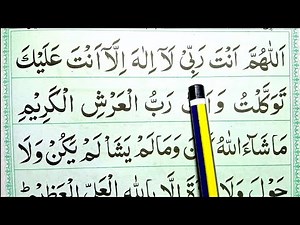 اَللّٰهُمَّ اَنْتَ رَبِّيْ لَآ اِلٰهَ اِلَّآ اَنْتَ عَلَيْكَ
تَوَكَّلْتُ رَبُّ الْعَرْشِ الْكَرِيْمِ
مَاشَآءَ اللّٰهُ وَمَالَمْ يَشَاْ لَمْ يَكُنْ وَلَا
حَوْلَ وَلَا اِلَّا بِاللّٰهِ الْعَلِيِّ الْعَظِيْمِ ط